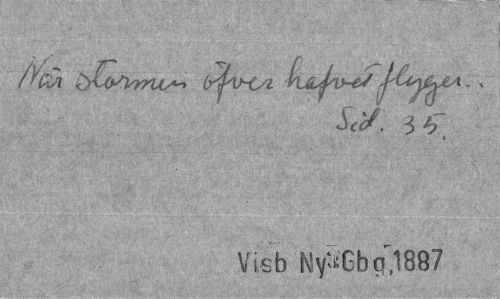 När stormen öfver hafvet flyger..
Sid. 35.
Visb Ny Gbg, 1887